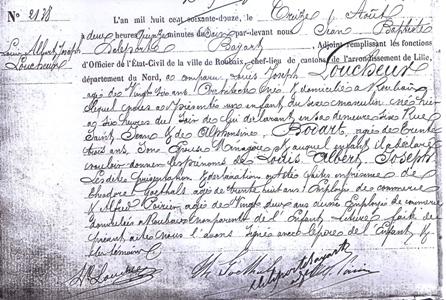 N° 2178
L'an mil huit cent soixante-douze, le Treize Août
à deux heures minutes du Soir par-devant nous Jean Baptiste
Louis Albert Joseph Deleporte Bayart Adjoint remplissant les fonctions
Loucheur d'Officier de l'État-Civil de la ville de Roubaix, chef-lieu de cantons, de l'arrondissement de Lille,
département du Nord, a comparu Joseph Loucheur
âgé de Vingt six ans né & domicilié à Roubaix
lequel nous a présenté un enfant du sexe masculin né hier
à six heures du soir de lui déclarant en sa demeure Rue
Saint Jean & de Alphonsine Bodart, âgée de trente
trois ans Son Epouse Ménagère & auquel enfant il a déclaré
vouloir donner les prénoms de Louis Albert Joseph
Lesdites présentation & déclaration ont été faites en présence de
Théodore âgé de trente huit ans Employé de commerce
& Alfred Poirier âgé de Vingt deux ans aussi Employé de commerce
domiciliés à Roubaix non parents de l'Enfant Lecture faite du
présent acte nous l'avons signé avec le père de l'Enfant &
les témoins
Loucheur
Deleporte Bayart